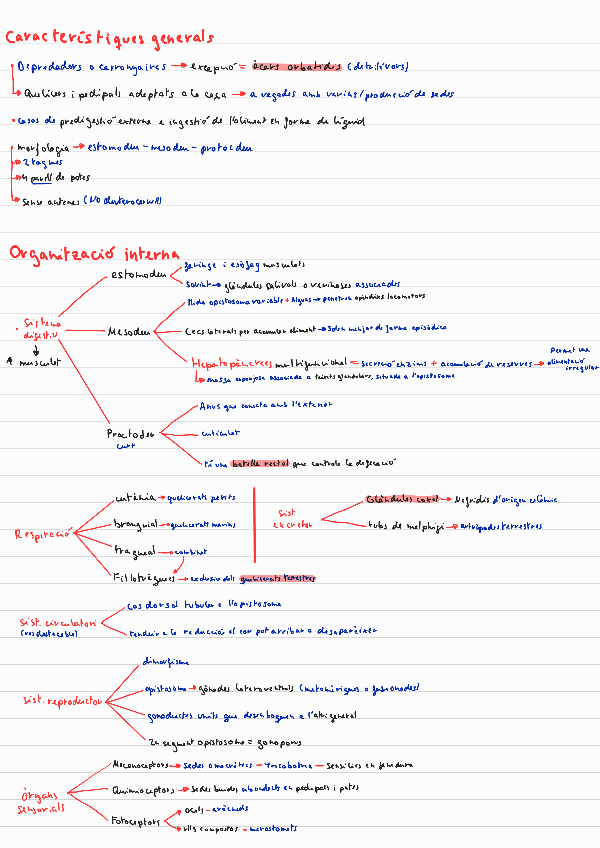 Característiques generals
Depredadors o carronyaires → excepció = àcars orbatidis (detritívors)
Quelícers i pedipals adaptats a la caça → a vegades amb verins/producció de sedes
casos de predigestió externa e ingestió de l'aliment en forma de líquid
morfologia → estomodeu - mesodeu - protocdeu
2 tagmes
4 parell de potes
Sense antenes (NO deuterocervell)
Organització interna
estomodeu
faringe i esòfag musculats
Sovint → glàndules salivals o verinoses associades
Sistema digestiu
↓
A musculat
Mesodeu
Mida opistosoma variable + Algus → penetren apèndixs locomotors
Cecs laterals per acumular aliment → Solen menjar de forma episòdica
Hepatopàncrees multifuncional = secreció enzims + acumulació de reserves → Permet una alimentació irregular
massa esponjosa associada a teixits glandulars, situada a l'opistosoma
Proctodeu
curt
Anus que conecta amb l'exterior
cuticulat
té una botella rectal que controla la defecació
Respiració
cutània → quelicerats petits
branquial → quelicerats marins
traqueal → combinat
Fil·lotràquees → exclusiu dels quelicerats terrestres
Sist excretor
Glàndules coxal → Nefridis d'origen celòmic
tubs de malphigi → artròpodes terrestres
Sist. circulatori
(res destacable)
Cos dorsal tubular a l'opistosoma
tendeix a la reducció el cor pot arribar a desaparèixer
Sist. reproductor
dimorfisme
opistosoma → gònodes lateroventrals (metamèriques o fusionades)
gonoductes units que desemboquen a l'atri genital
2n segment opistosoma = gonopors
Òrgans sensorials
Meconoceptors → Sedes = tricobotris - sensilies en fenedura
Quimioceptors → Sedes buides abundants en pedipals i potes
Fotoceptors
ocels - aràcnids
ulls compostos - merostomats